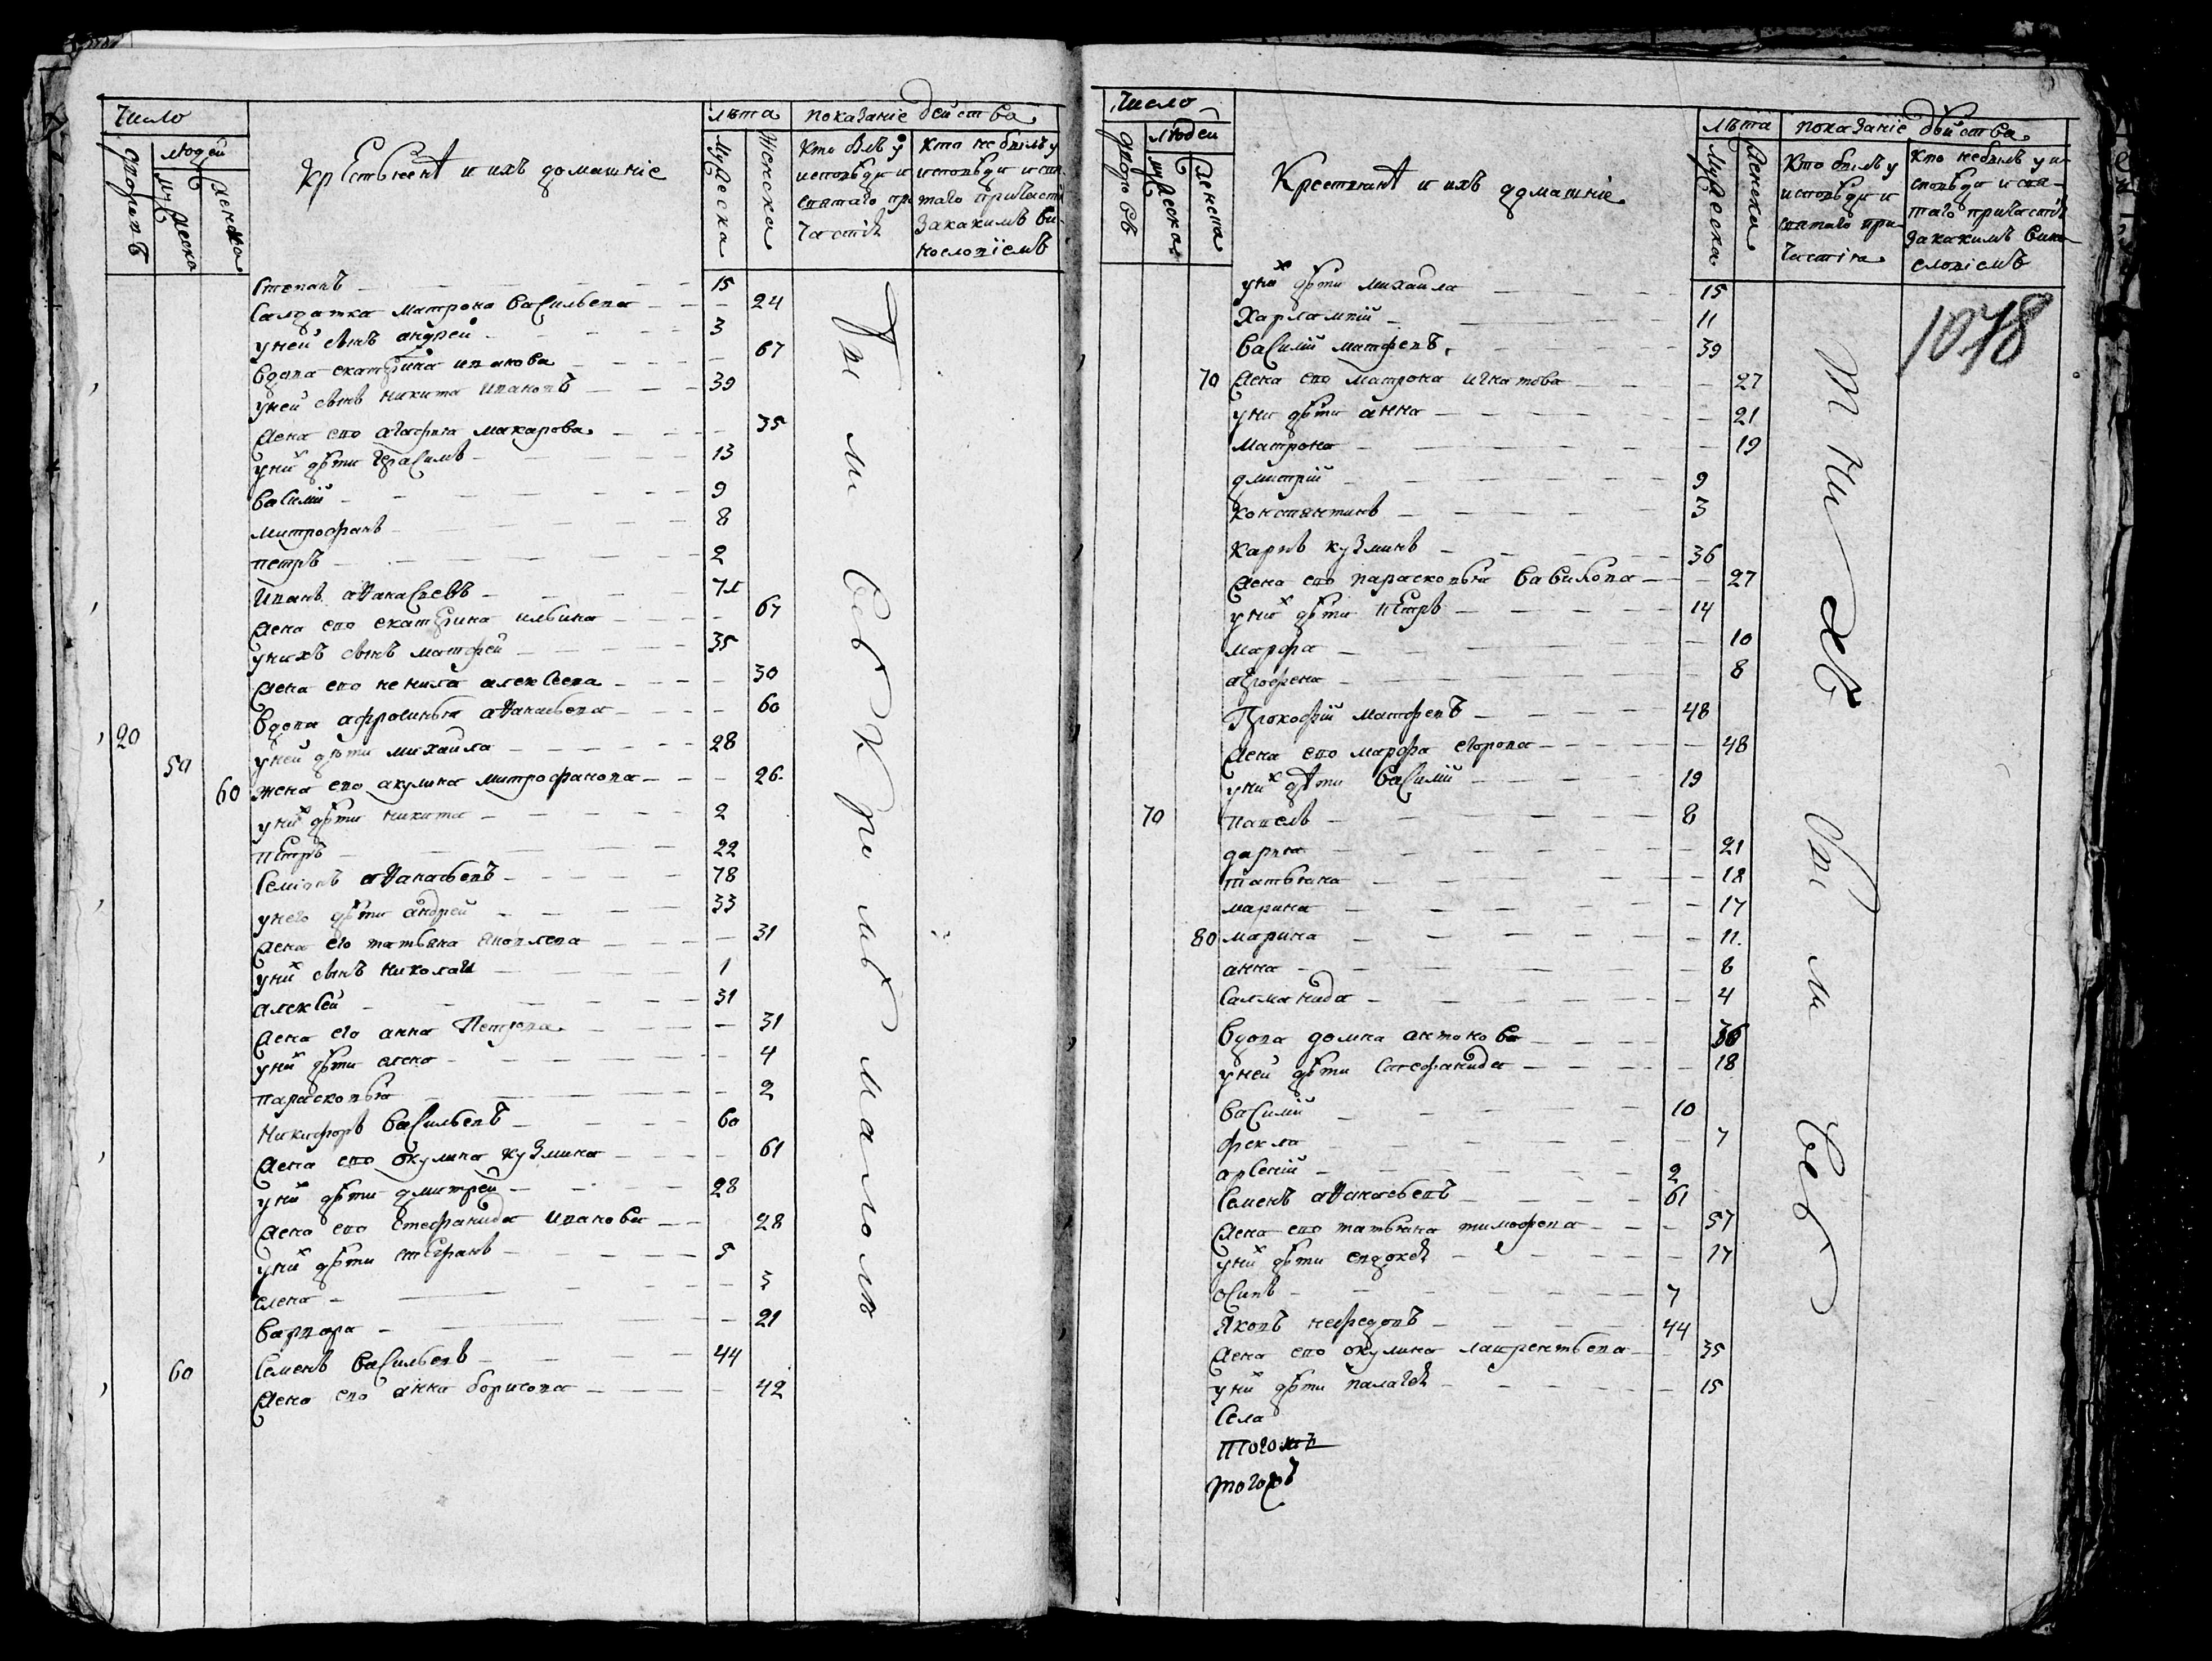 Число
людей
дворовъ
мужеска
женска
крестьянѣ и ихъ домашніе
лѣта
мужеска
женска
показаніе действа
кто былъ у
исповѣди и
святаго при
частія
кто небылъ у
исповѣди и свя
таго причастія
закакимъ ви
нословіемъ
Степанъ 15
Салдатка матрона васильева 24
уней сынъ андрей 3
вдова екатерина иванова 67
уней сынъ никита ивановъ 39
жена ево агафия макарова 35
уних дѣти герасимъ 13
василий 9
митрофанъ 8
петръ 2
Иванъ аѳанасьевъ 71
жена ево екатерина ильина 67
унихъ сынъ матфей 35
жена ево ненила алексеева 30
вдова афросинья аѳанасьева 60
20 уней дѣти михаила 28
59 60 жена ево акулина митрофанова 26
уних дѣти никита 2
петръ 22
Семіонъ аѳанасьевъ 78
унего дѣти андрей 33
жена его татьяна яковлева 31
уних сынъ николай 1
алексей 31
жена его анна Петрова 31
уних дѣти елена 4
парасковья 2
Никифоръ васильевъ 60
жена ево окулина кузмина 61
уних дѣти дмитрей 28
жена ево стефанида иванова 28
уних дѣти стефанъ 5
елена 3
варвара 21
60 Семенъ васильевъ 44
жена ево анна борисова 42
Число
людей
дворовъ
мужеска
женска
Крестьянѣ и ихъ домашніе
лѣта
мужеска
женска
показаніе действа
Кто былъ у
исповѣди и
святаго при
частія
кто небылъ у и
сповѣди и свя
таго причастія
закакимъ вино
словіемъ
1078
уних дѣти михаила 15
Харлампий 11
василий матфевъ 39
70 жена ево матрона игнатова 27
уних дѣти анна 21
матрона 19
дмитрий 9
константинъ 3
карпъ кузминъ 36
жена ево парасковья вавилова 27
уних дѣти петръ 14
марфа 10
аграфена 8
Прокофий матфевъ 48
жена ево марфа егорова 48
уних дѣти василий 19
70 павелъ 8
дарья 21
татьяна 18
марина 17
80 марина 11
анна 8
саламанида 4
вдова домна антонова 36
уней дѣти стефанида 18
василий 10
фекла 7
арсений 2
Семенъ аѳанасьевъ 61
жена ево татьяна тимофева 57
уних дѣти евдокея 17
осипъ 7
Яковъ нефедовъ 44
жена ево окулина лаврентьева 35
уних дѣти палагея 15
Села
тогожъ